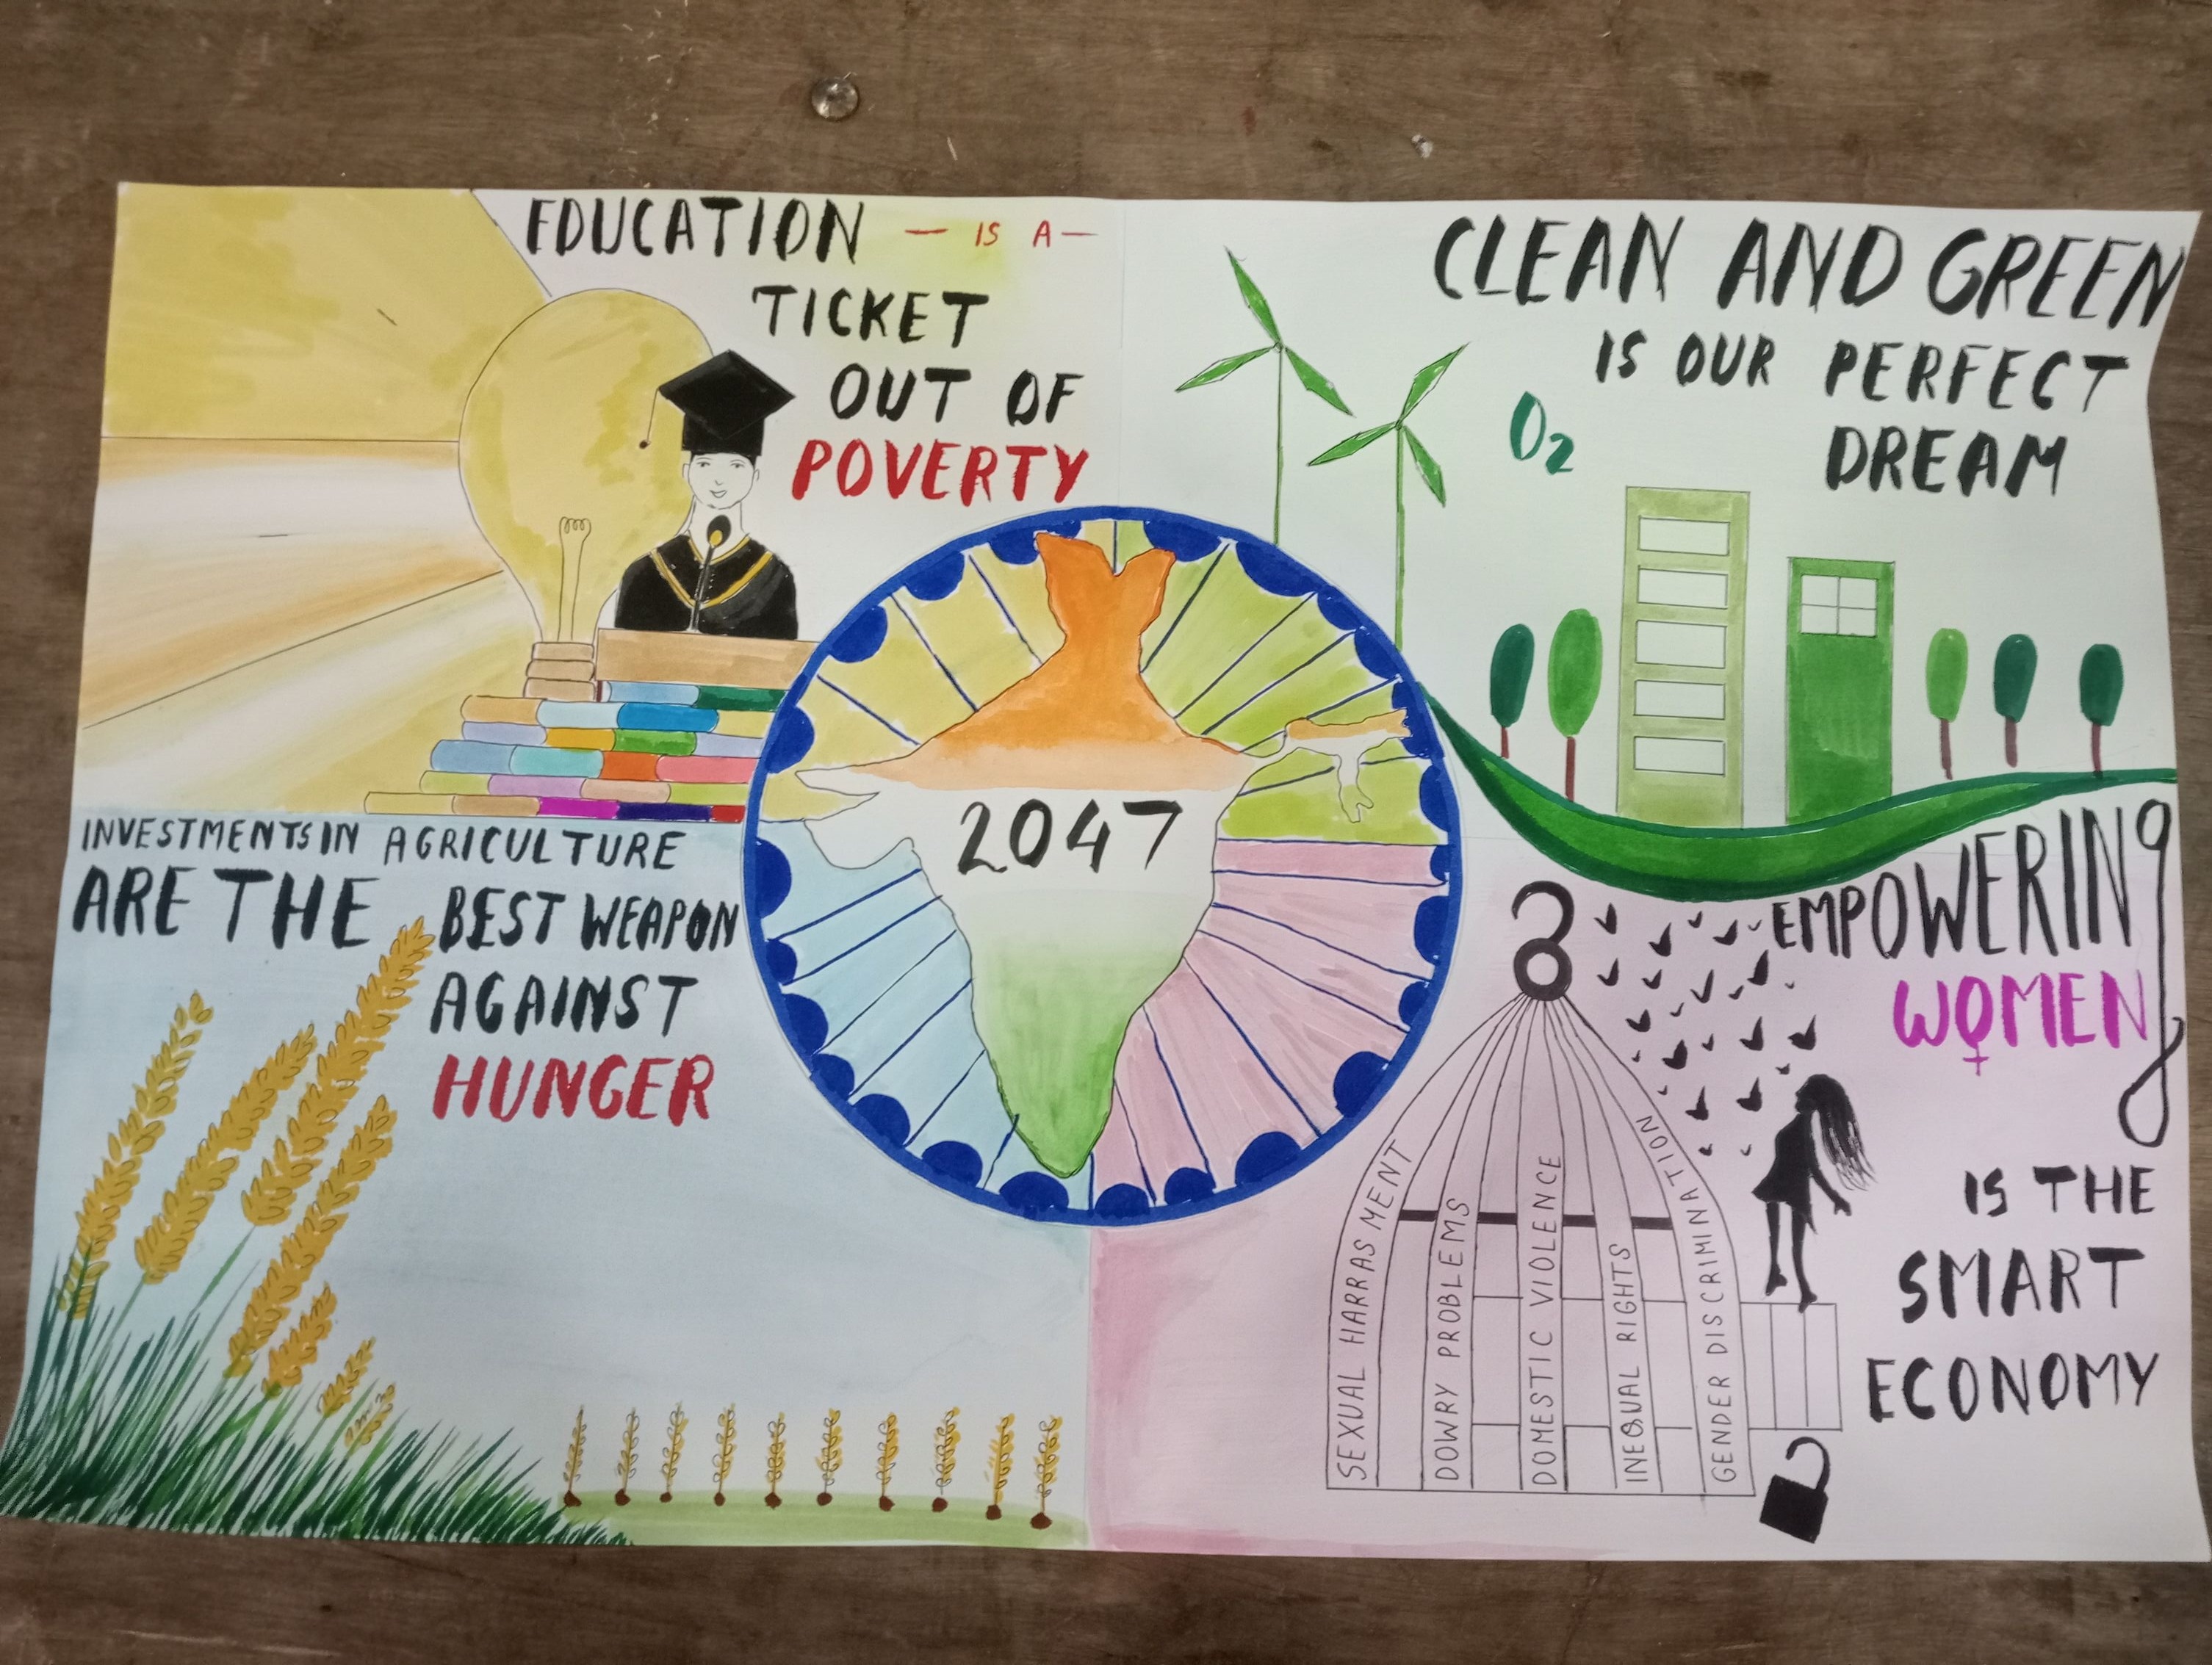 EDUCATION — IS A —
TICKET
OUT OF
POVERTY
CLEAN AND GREEN
IS OUR PERFECT
DREAM
O2
2047
INVESTMENTS IN AGRICULTURE
ARE THE BEST WEAPON
AGAINST
HUNGER
EMPOWERINg
WOMEN
IS THE
SMART
ECONOMY
SEXUAL HARRASMENT
DOWRY PROBLEMS
DOMESTIC VIOLENCE
INEQUAL RIGHTS
GENDER DISCRIMINATION